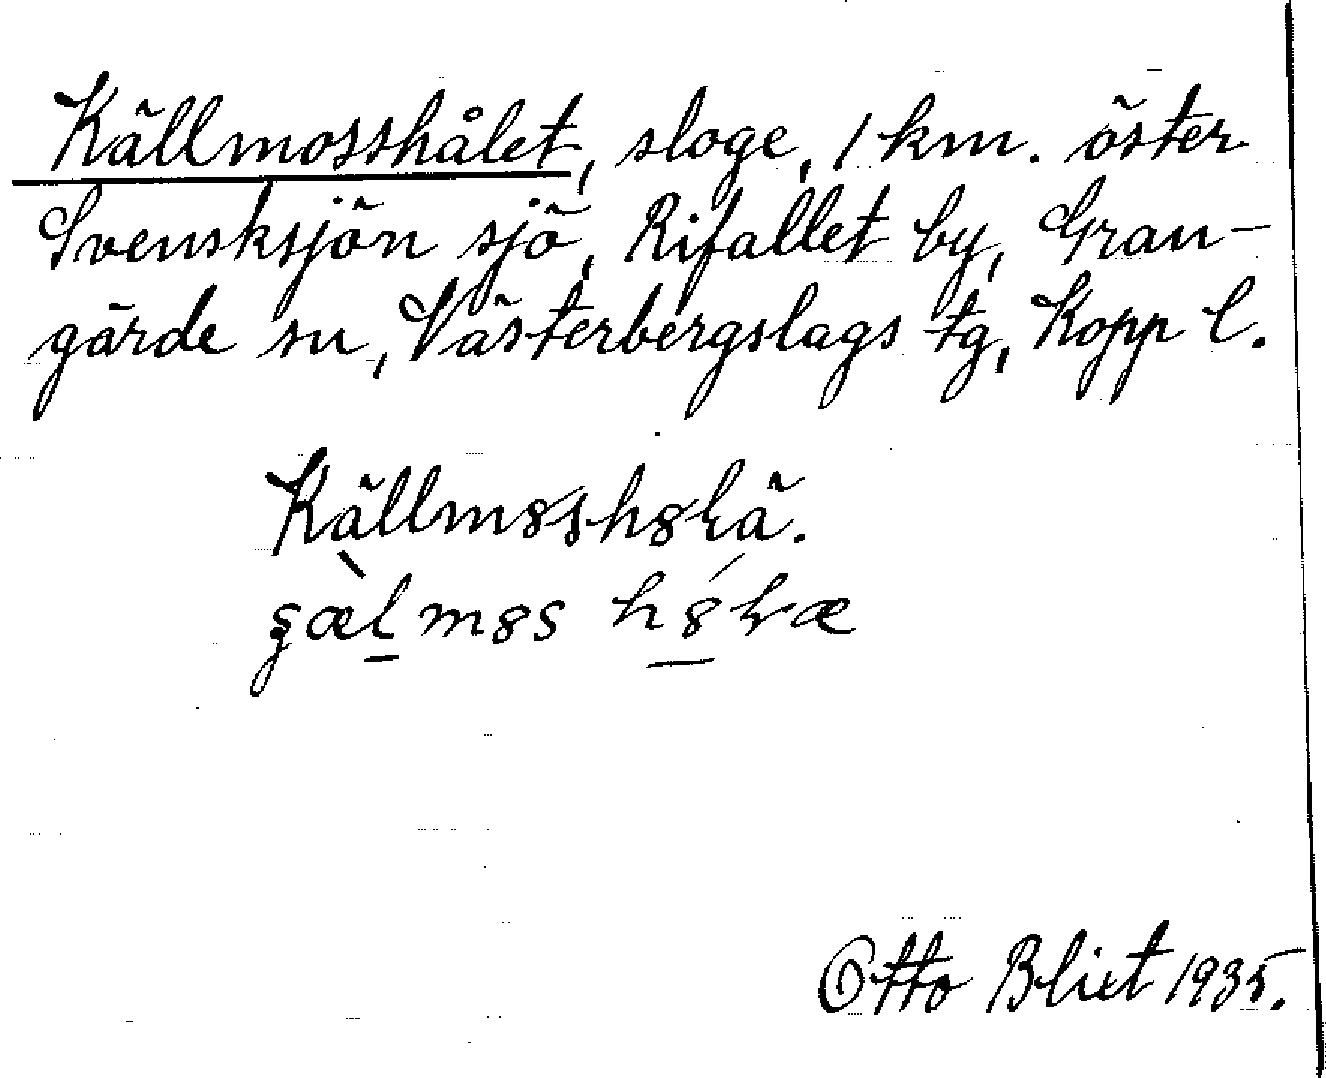 Källmosshålet, sloge, 1 km. öster
Svensksjön sjö, Rifallet by, Gran-
gärde sn, Västerbergslags tg, Kopp l.
Källm8ssh8ɽä.
m8s
Otto Bliet 1935.